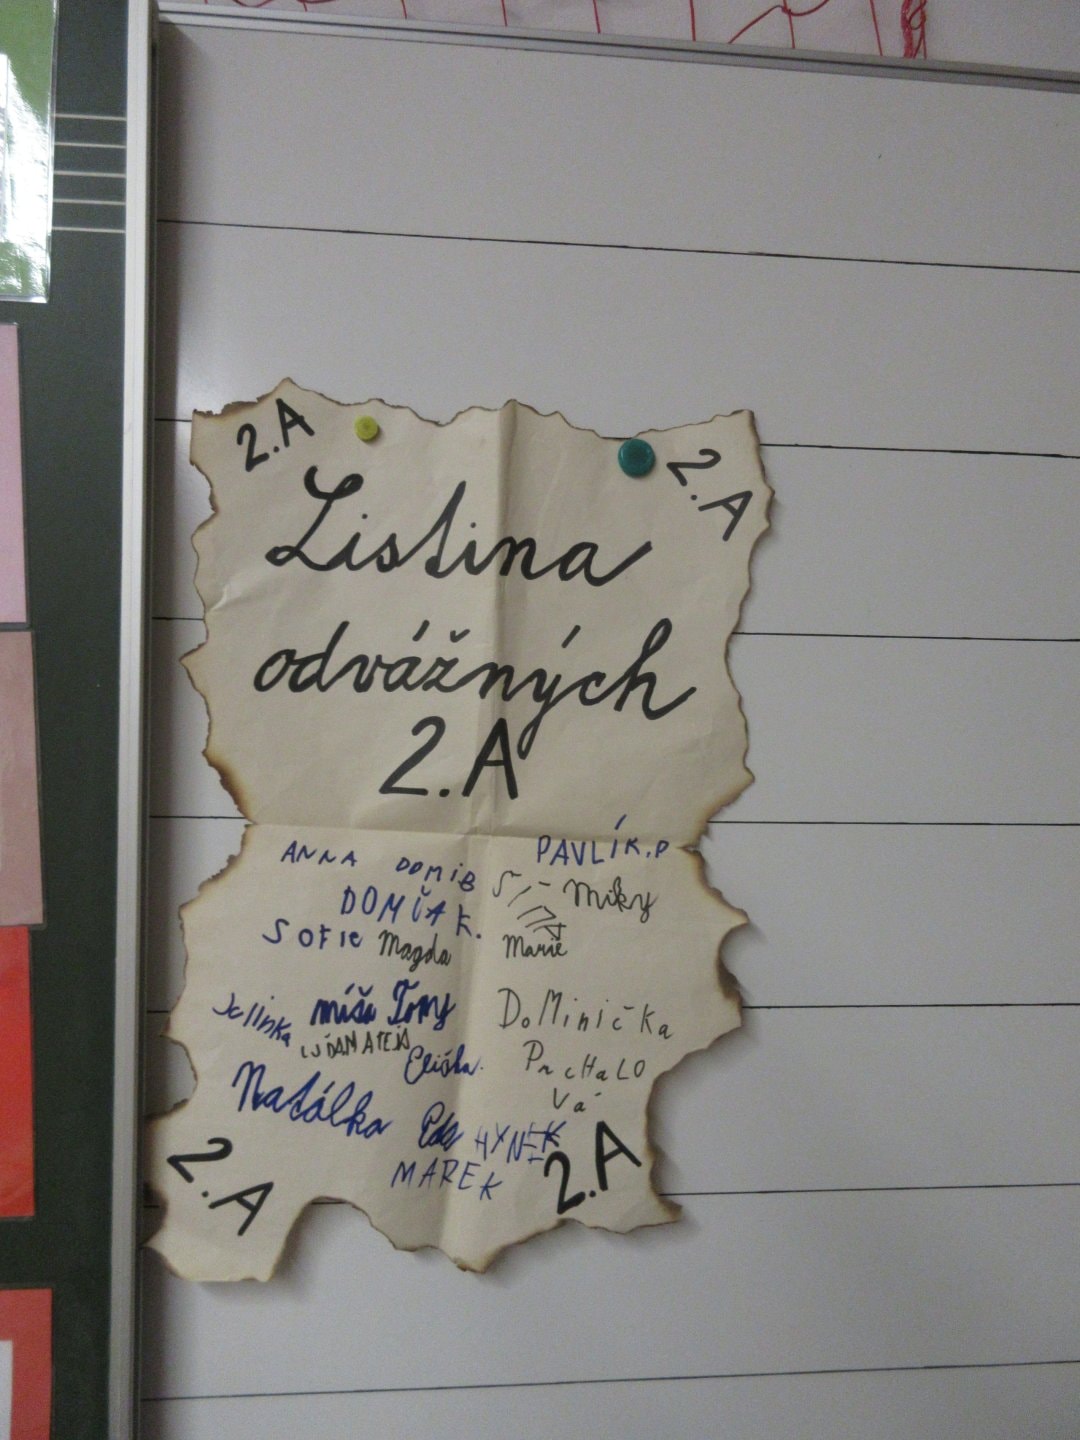 2.A
2.A
Listina
odvážných
2.A
ANNA DOMČB PAVLÍK.P
DOMČA K. Miky
SOFIE Magda Marie
Julinka míša Tomy DoMinička
MATEJ Eliška. PucHaLO
Vá
Natálka Eda HYNEK
MAREK
2.A
2.A